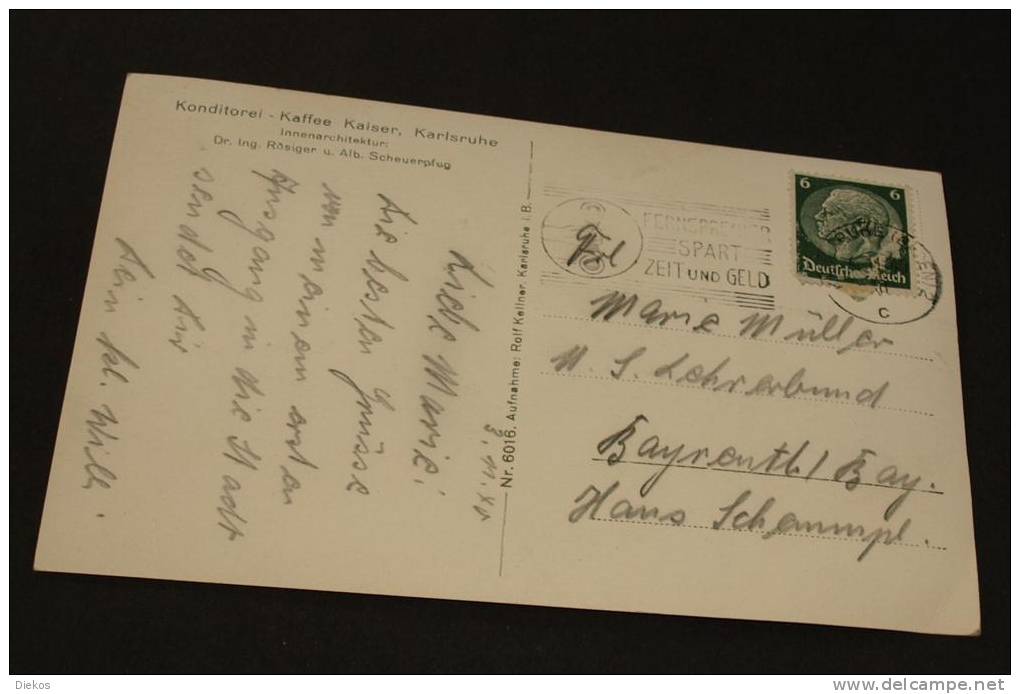 Konditorei - Kaffee Kaiser, Karlsruhe
Innenarchitektur:
Dr. Ing. Rösiger u. Alb. Scheuerpfug
3. XI. 40
Liebe Marie!
Die besten Grüsse
von meinem ersten
Ausgang in die Stadt
sendet Dir
Dein kl. Willi.
Nr. 6016. Aufnahme: Rolf Kellner, Karlsruhe i. B.
FERNSPRECHER
SPART
ZEIT UND GELD
6 6
Deutsches Reich
KARLSRUHE
C
Frl
Marie Müller
N. S. Lehrerbund
Bayreuth / Bay.
Hans Schemmpl.
Diekos
delcampe.net